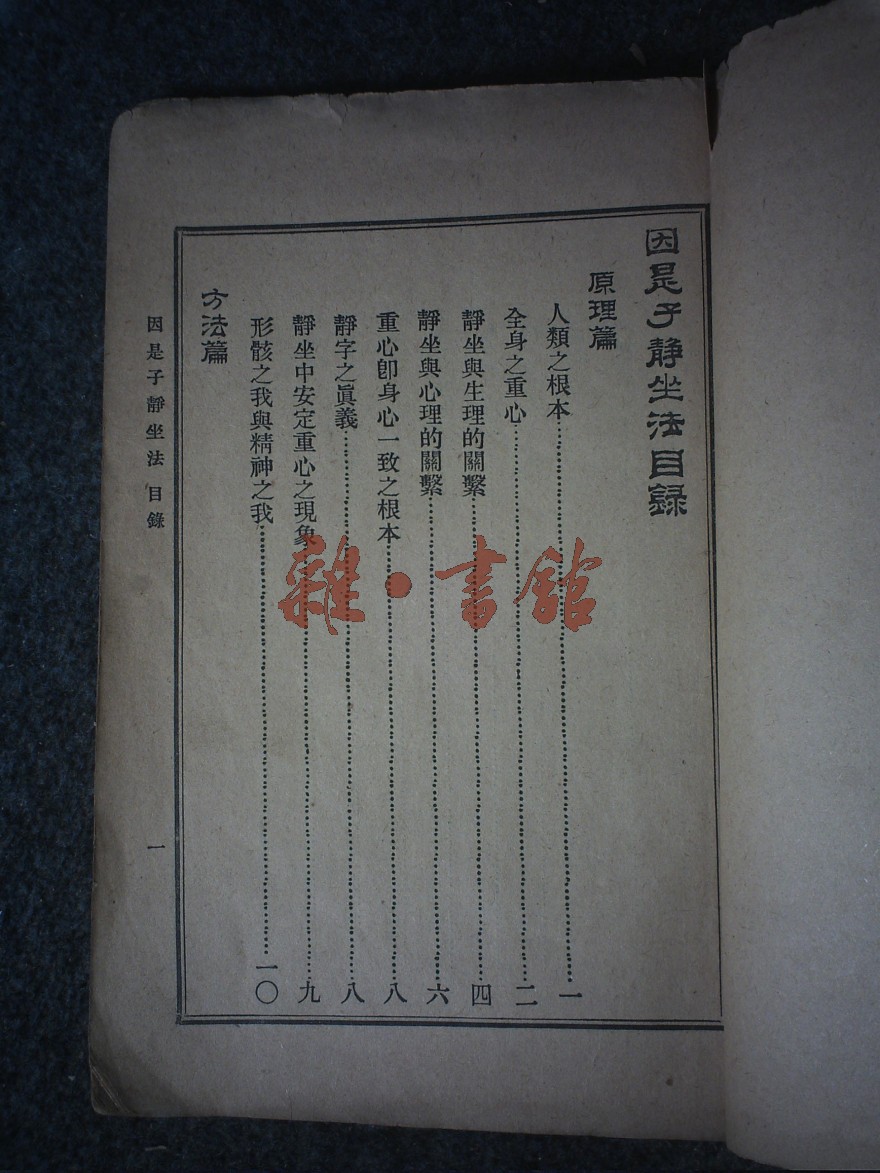 因是子靜坐法目錄
原理篇
人類之根本……一
全身之重心……二
靜坐與生理的關繫……四
靜坐與心理的關繫……六
重心卽身心一致之根本……八
靜字之眞義……八
靜坐中安定重心之現象……九
形骸之我與精神之我……一〇
方法篇
因是子靜坐法 目錄
一
雜·書館